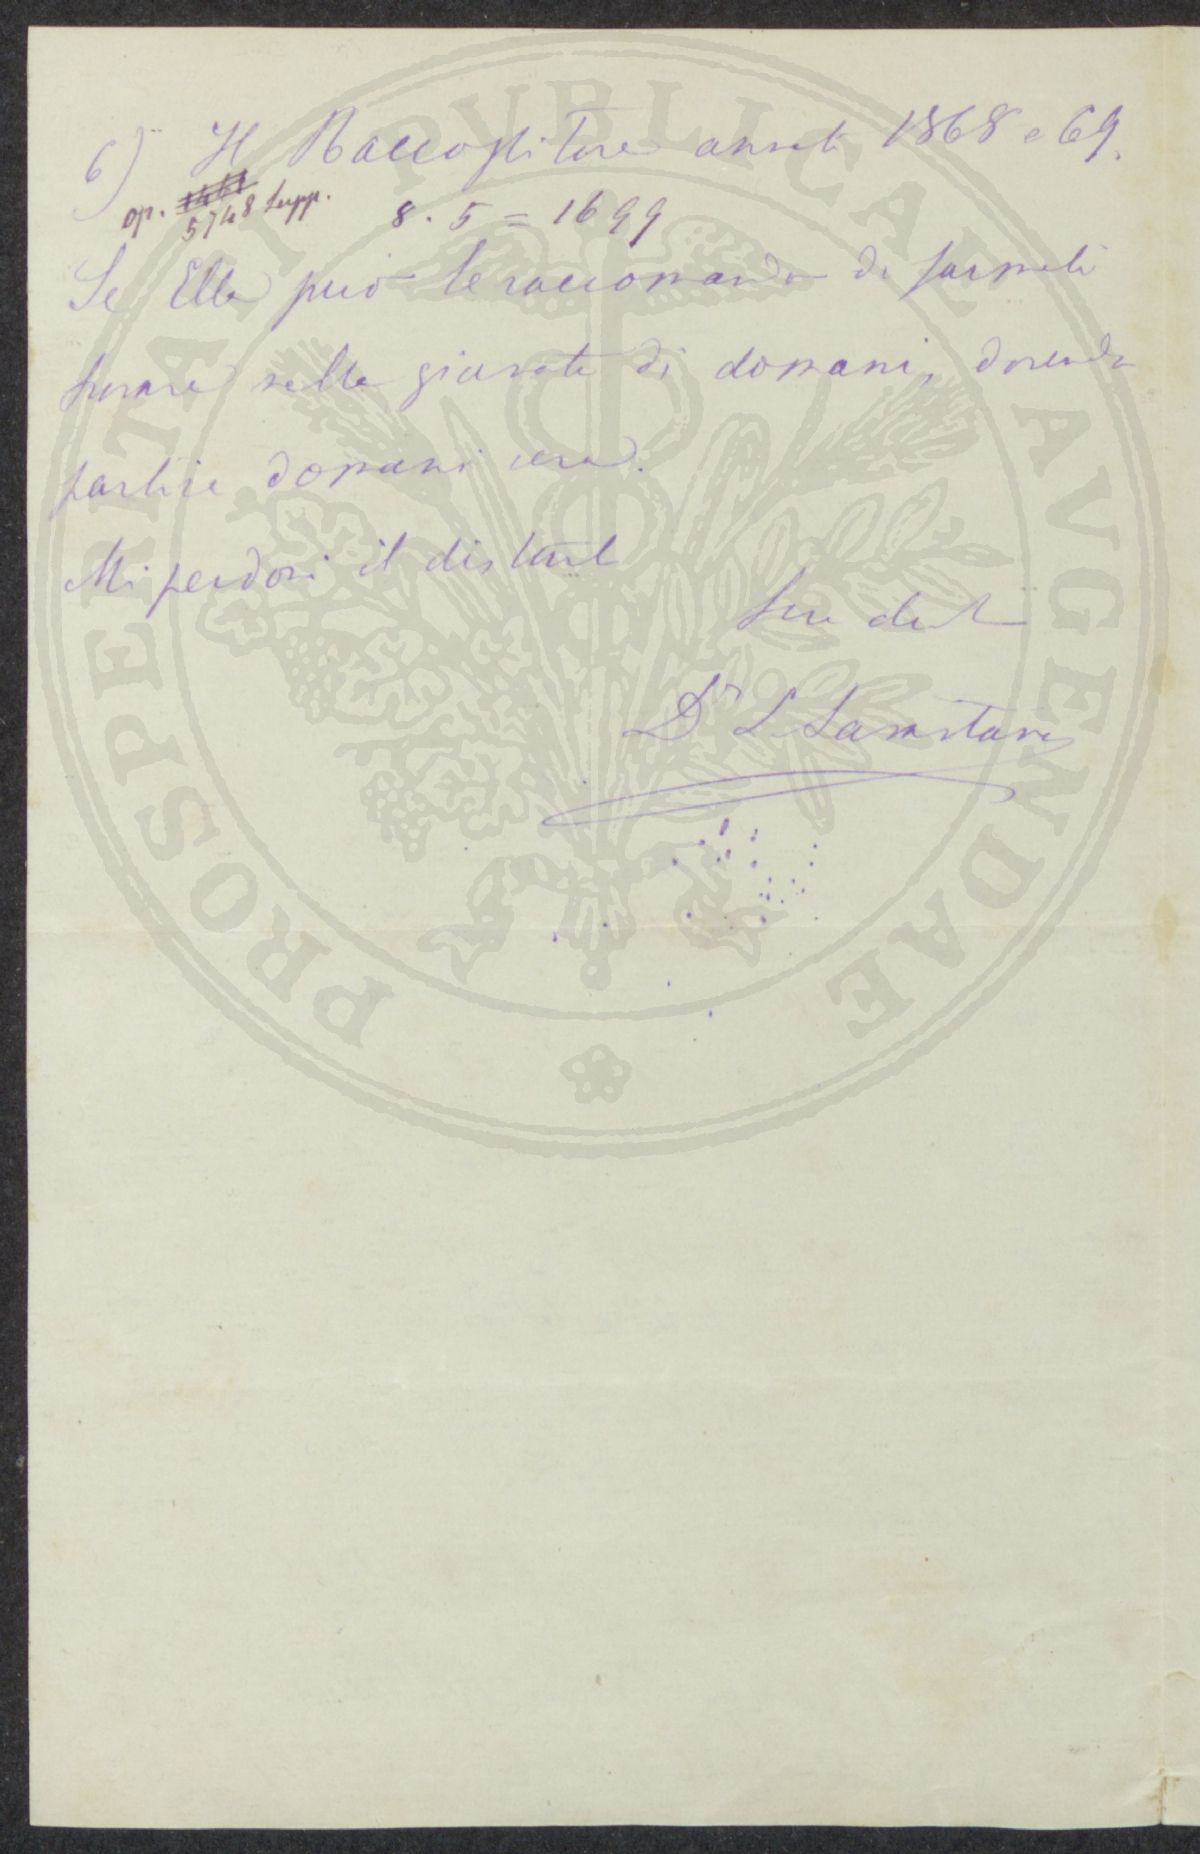 6) Il Raccoglitore annate 1868 e 69.
op. 5748 supp. 8. 5 = 1699
Se Ella può le raccomando di farmeli
avere nella giornata di domani, dovendo
partire domani sera.
Mi perdoni il disturb
Suo dev
Dr L.
PROSPERITATI PVBLICAE AVGENDAE